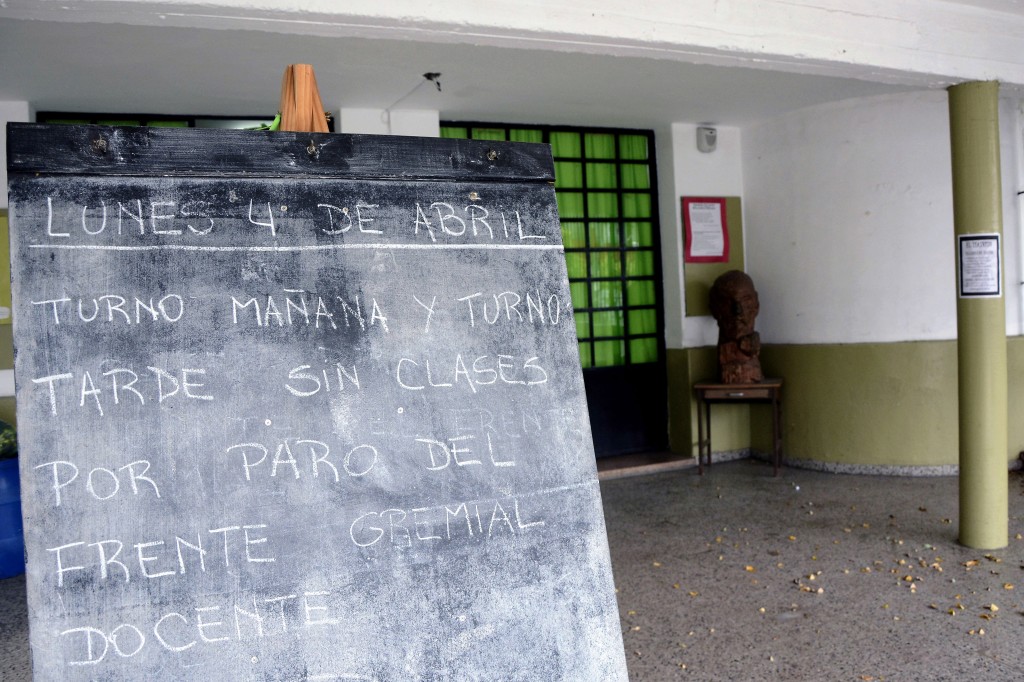 LUNES 4 DE ABRIL
TURNO MAÑANA Y TURNO
TARDE SIN CLASES
POR PARO DEL
FRENTE GREMIAL
DOCENTE